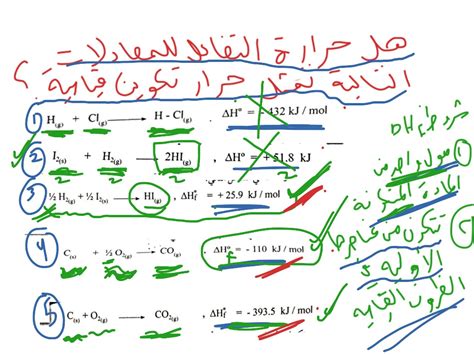 هل حرارة التفاعل للمعادلات
التالية تمثل حرار تكوين قياسية ؟
1) H(g) + Cl(g) → H - Cl(g) , ΔH° = - 432 kJ / mol
2) I2(s) + H2(g) → 2HI(g) , ΔH° = + 51.8 kJ
3) ½ H2(g) + ½ I2(s) → HI(g) , ΔH°f = + 25.9 kJ / mol
4) C(s) + ½ O2(g) → CO(g) ΔH°f = - 110 kJ / mol
5) C(s) + O2(g) → CO2(g) , ΔH°f = - 393.5 kJ / mol
شروط ΔH
1) مول واحد من
المادة المتكونة
2) تتكون من عناصرها
الأولية
الظروف القياسية